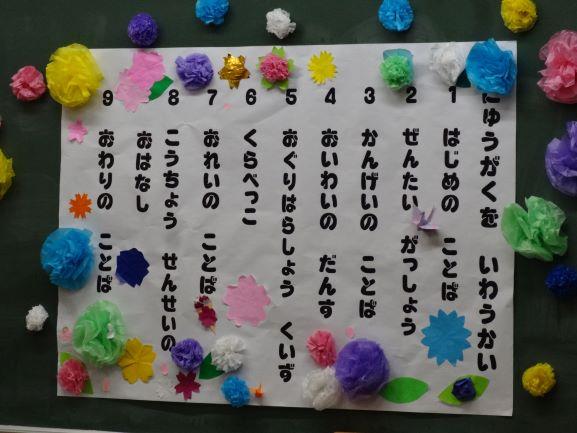 にゅうがくを いわうかい
1 はじめの ことば
2 ぜんたい がっしょう
3 かんげいの ことば
4 おいわいの だんす
5 おぐりはらしょう くいず
6 くらべっこ
7 おれいの ことば
8 こうちょう せんせいの
おはなし
9 おわりの ことば